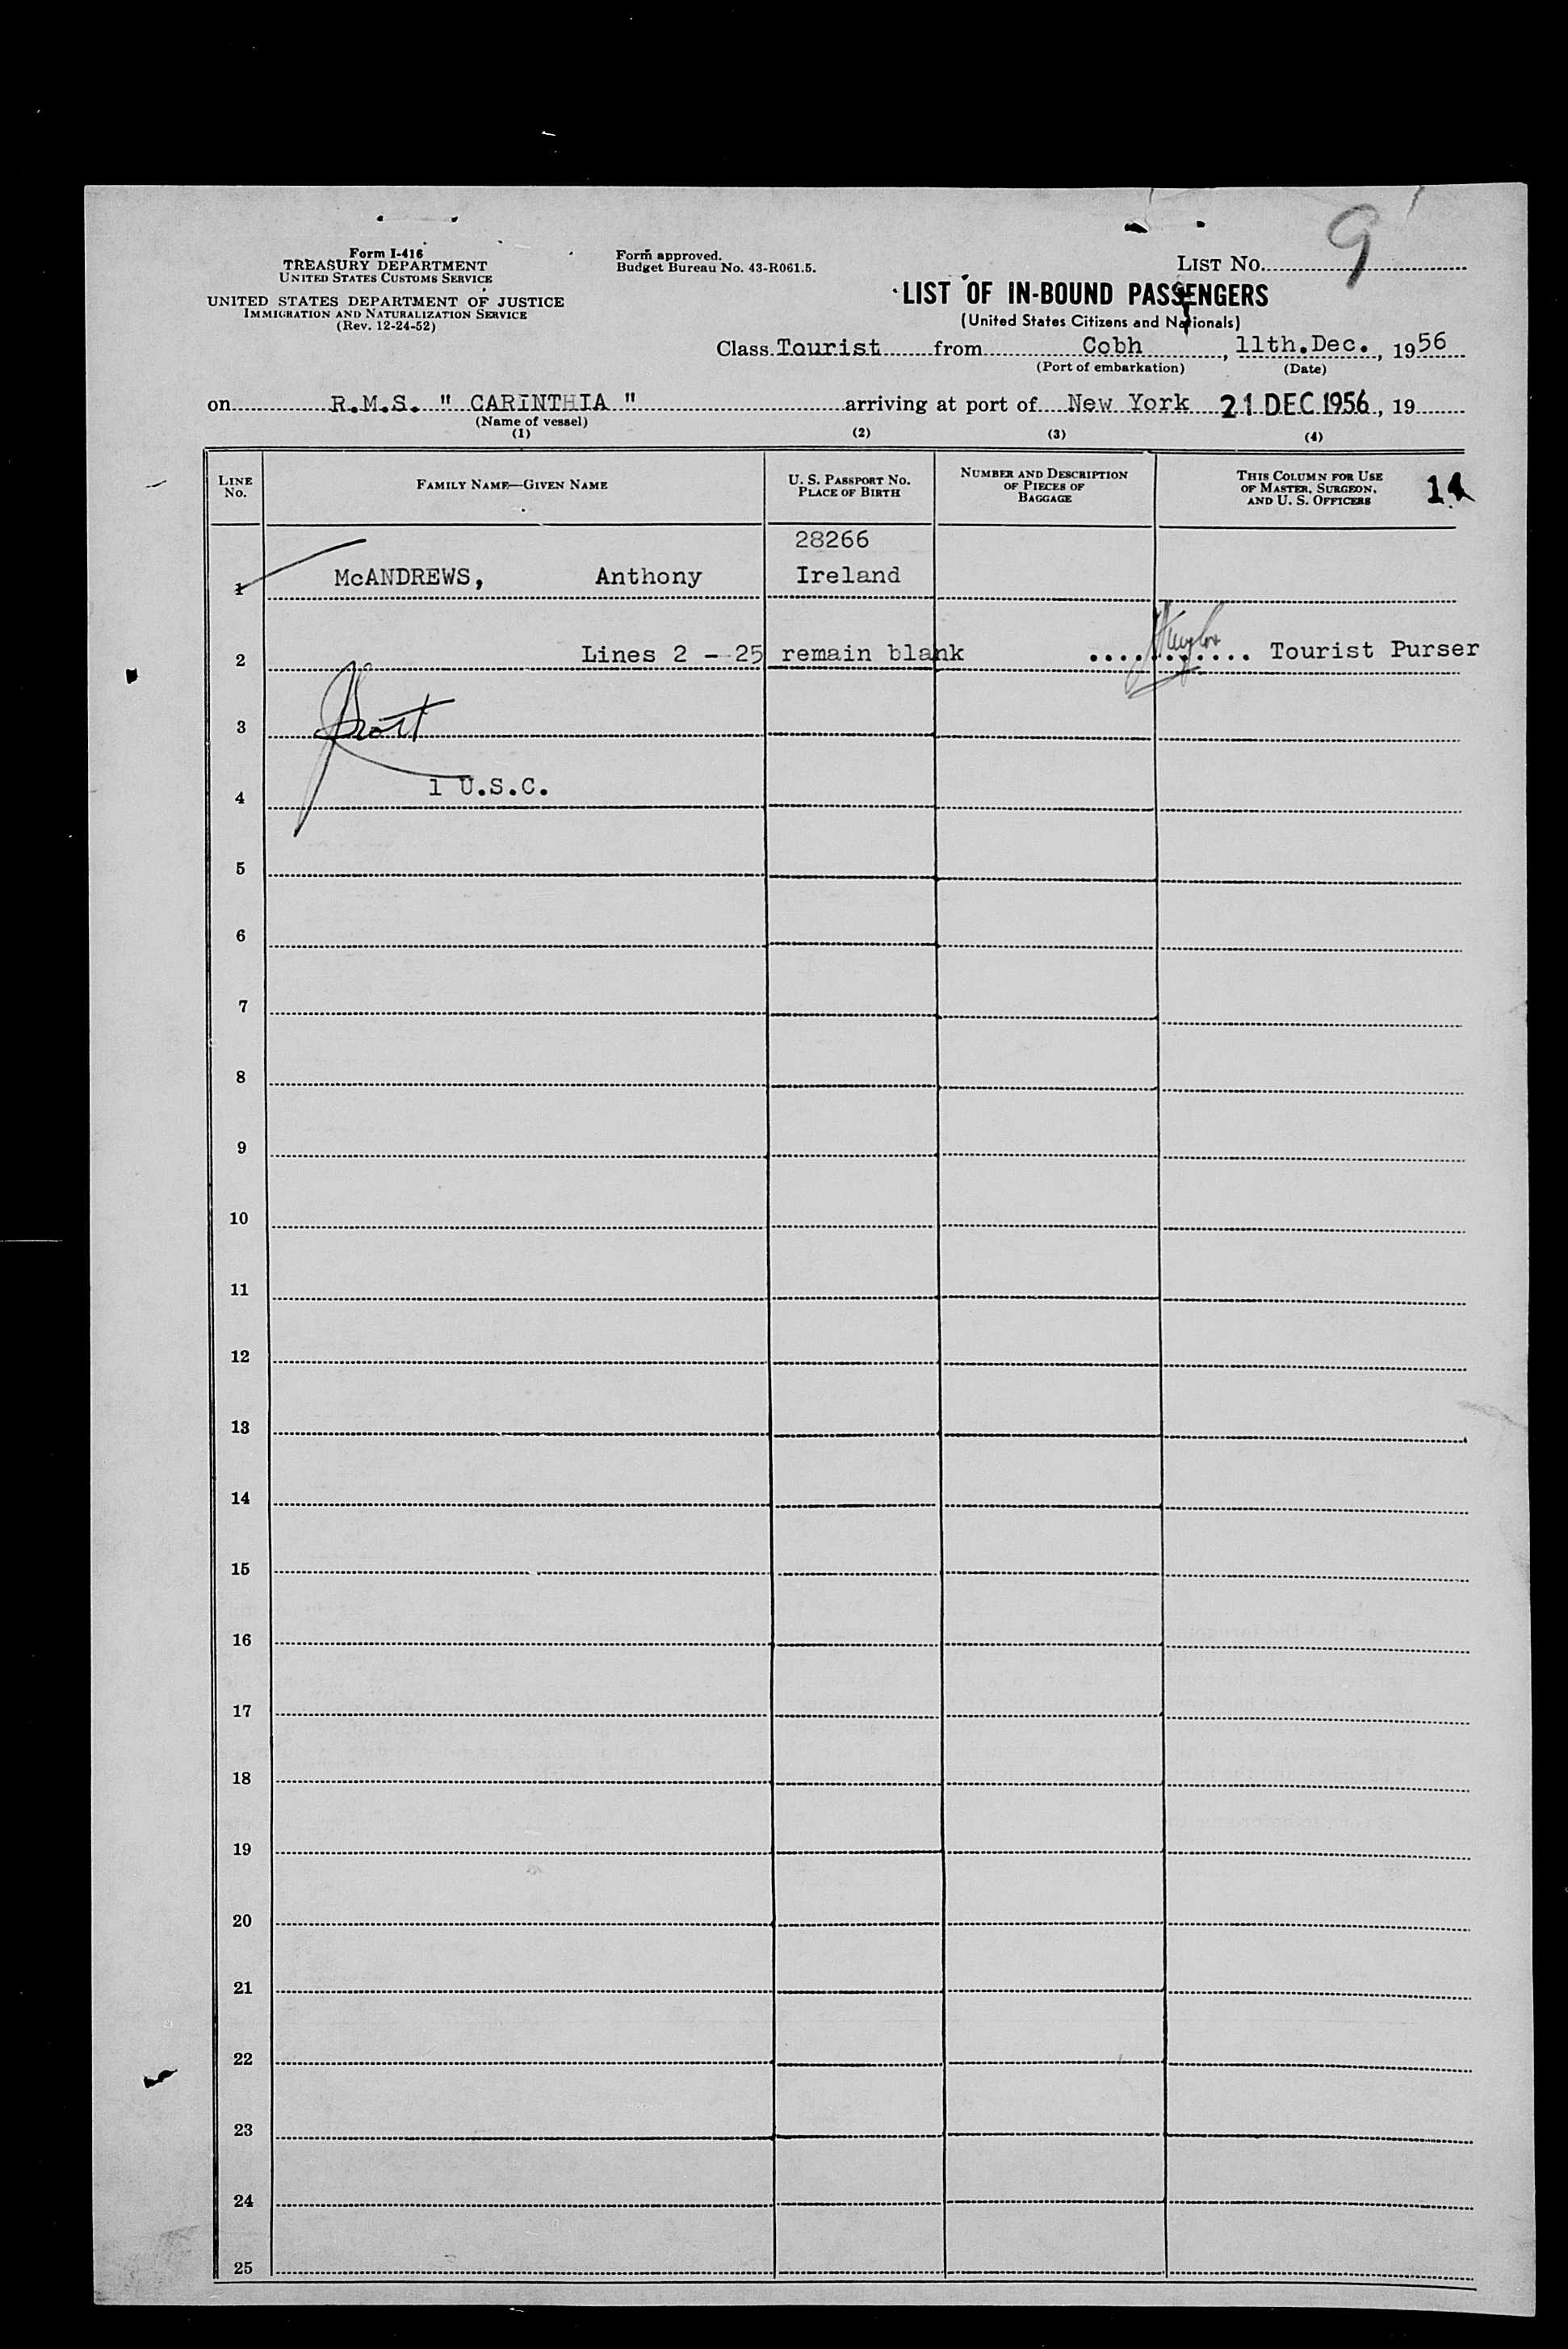 Form I-416
TREASURY DEPARTMENT
UNITED STATES CUSTOMS SERVICE
UNITED STATES DEPARTMENT OF JUSTICE
IMMIGRATION AND NATURALIZATION SERVICE
(Rev. 12-24-52)
Form approved.
Budget Bureau No. 43-R061.5.
LIST No. 9
LIST OF IN-BOUND PASSENGERS
(United States Citizens and Nationals)
Class Tourist from Cobh, 11th.Dec., 1956
(Port of embarkation) (Date)
on R.M.S. " CARINTHIA " arriving at port of New York 21 DEC 1956, 19
(Name of vessel)
(1) (2) (3) (4)
LINE No. FAMILY NAME—GIVEN NAME U. S. PASSPORT No. PLACE OF BIRTH NUMBER AND DESCRIPTION OF PIECES OF BAGGAGE THIS COLUMN FOR USE OF MASTER, SURGEON, AND U. S. OFFICERS
28266
1 McANDREWS, Anthony Ireland
2 Lines 2 - 25 remain blank ............ Tourist Purser
3
4 1 U.S.C.
5
6
7
8
9
10
11
12
13
14
15
16
17
18
19
20
21
22
23
24
25